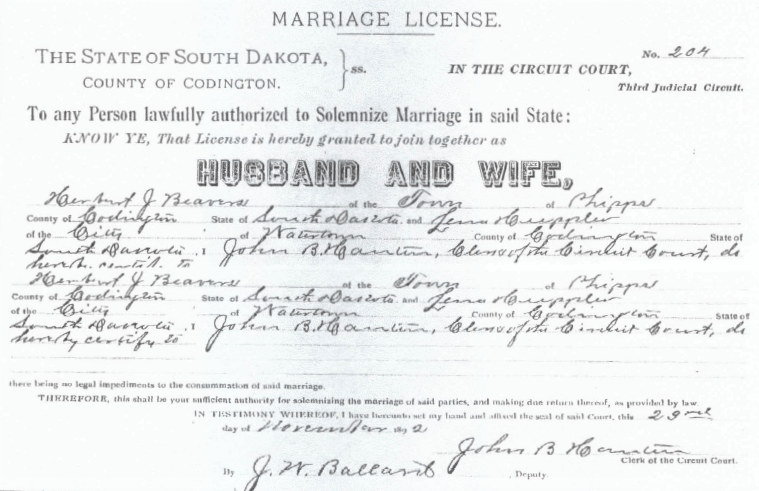 MARRIAGE LICENSE.
No. 204
THE STATE OF SOUTH DAKOTA,
COUNTY OF CODINGTON.
ss.
IN THE CIRCUIT COURT,
Third Judicial Circuit.
To any Person lawfully authorized to Solemnize Marriage in said State:
KNOW YE, That License is hereby granted to join together as
HUSBAND AND WIFE,
Herbert J Beavers of the Town of Phipps
County of Codington State of South Dakota and Lena
of the City of Watertown County of Codington State of
South Dakota, I John B. Hanten, Clerk of the Circuit Court, do
hereby certify to
Herbert J Beavers of the Town of Phipps
County of Codington State of South Dakota and Lena
of the City of Watertown County of Codington State of
South Dakota, I John B. Hanten, Clerk of the Circuit Court, do
hereby certify to
there being no legal impediments to the consummation of said marriage.
THEREFORE, this shall be your sufficient authority for solemnizing the marriage of said parties, and making due return thereof, as provided by law.
IN TESTIMONY WHEREOF, I have hereunto set my hand and affixed the seal of said Court, this 23rd
day of November 1892
John B Hanten
Clerk of the Circuit Court.
By J. W. Ballard, Deputy.